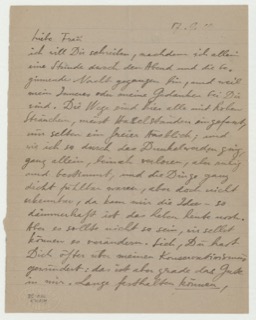 Liebe Frei
ich will Dir schreiben, nachdem ich allein
eine Stunde durch den Abend und die be-
ginnende Nacht gegangen bin, und weil
mein Inneres oder meine Gedanken bei Dir
sind. Die Wege sind hier alle mit hohen
Sträuchern, meist Haselstauden eingefasst,
nur selten ein freier Ausblick, und
wie ich so durch das Dunkelwerden ging,
ganz allein, beinah verloren, aber ruhig
und bestimmt, und die Dinge ganz
dicht fühlbar waren, aber doch nicht
erkennbar, da kam mir die Idee – so
dämmerhaft ist das Leben heute noch.
Aber es sollte nicht so sein, wir selbst
können es verändern. Sieh, Du hast
Dich öfter über meinen Konservativismus
gewundert: das ist aber grade das Gute
in mir. Lange festhalten können,